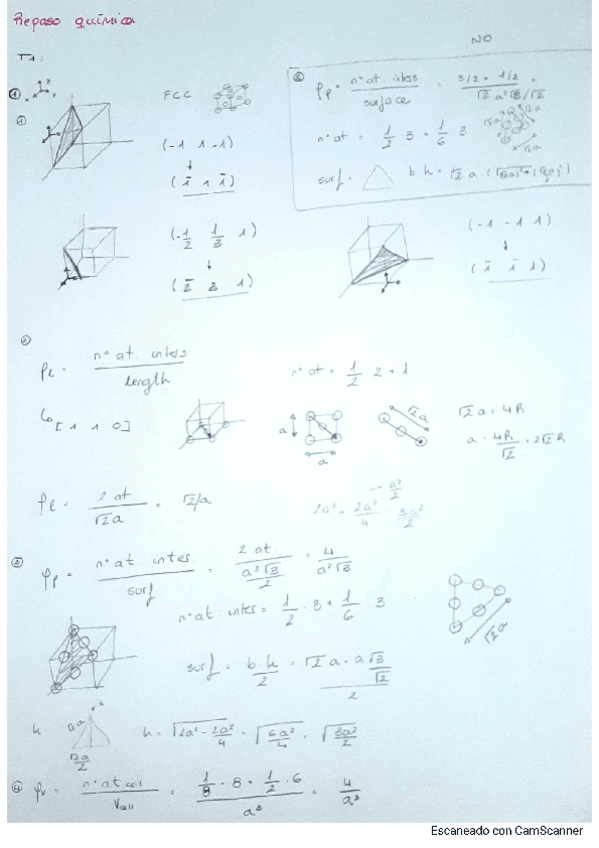 Repaso química
NO
T1:
①
①
FCC
(-1 1 -1)
↓
(1̄ 1 1̄)
② ρp = nº at. inters / surface = 3/2 + 1/2 / √2 a² √3/√2 =
nº at = 1/2 3 + 1/6 3
surf =
b h = √2 a
(-1/2 1/3 1)
↓
(2̄ 3 1)
(-1 -1 1)
↓
(1̄ 1̄ 1)
②
ρl = nº at. inters / length
nº at = 1/2 2 + 1
[1 1 0]
a
a
√2 a
√2 a = 4R
a = 4R/√2 = 2√2 R
ρl = 2 at / √2 a = √2/a
③
ρp = nº at inters / surf = 2 at. / a²√3/2 = 4 / a²√3
nº at. inter = 1/2 · 3 + 1/6 3
√2 a
surf = b h / 2 = √2 a · a√3/√2 / 2
h
√2a
√2a/2
h = √2a² - 2a²/4 = √6a²/4 = √3a²/2
④ ρv = nº at cell / Vcell = 1/8 · 8 + 1/2 · 6 / a³ = 4/a³
Escaneado con CamScanner